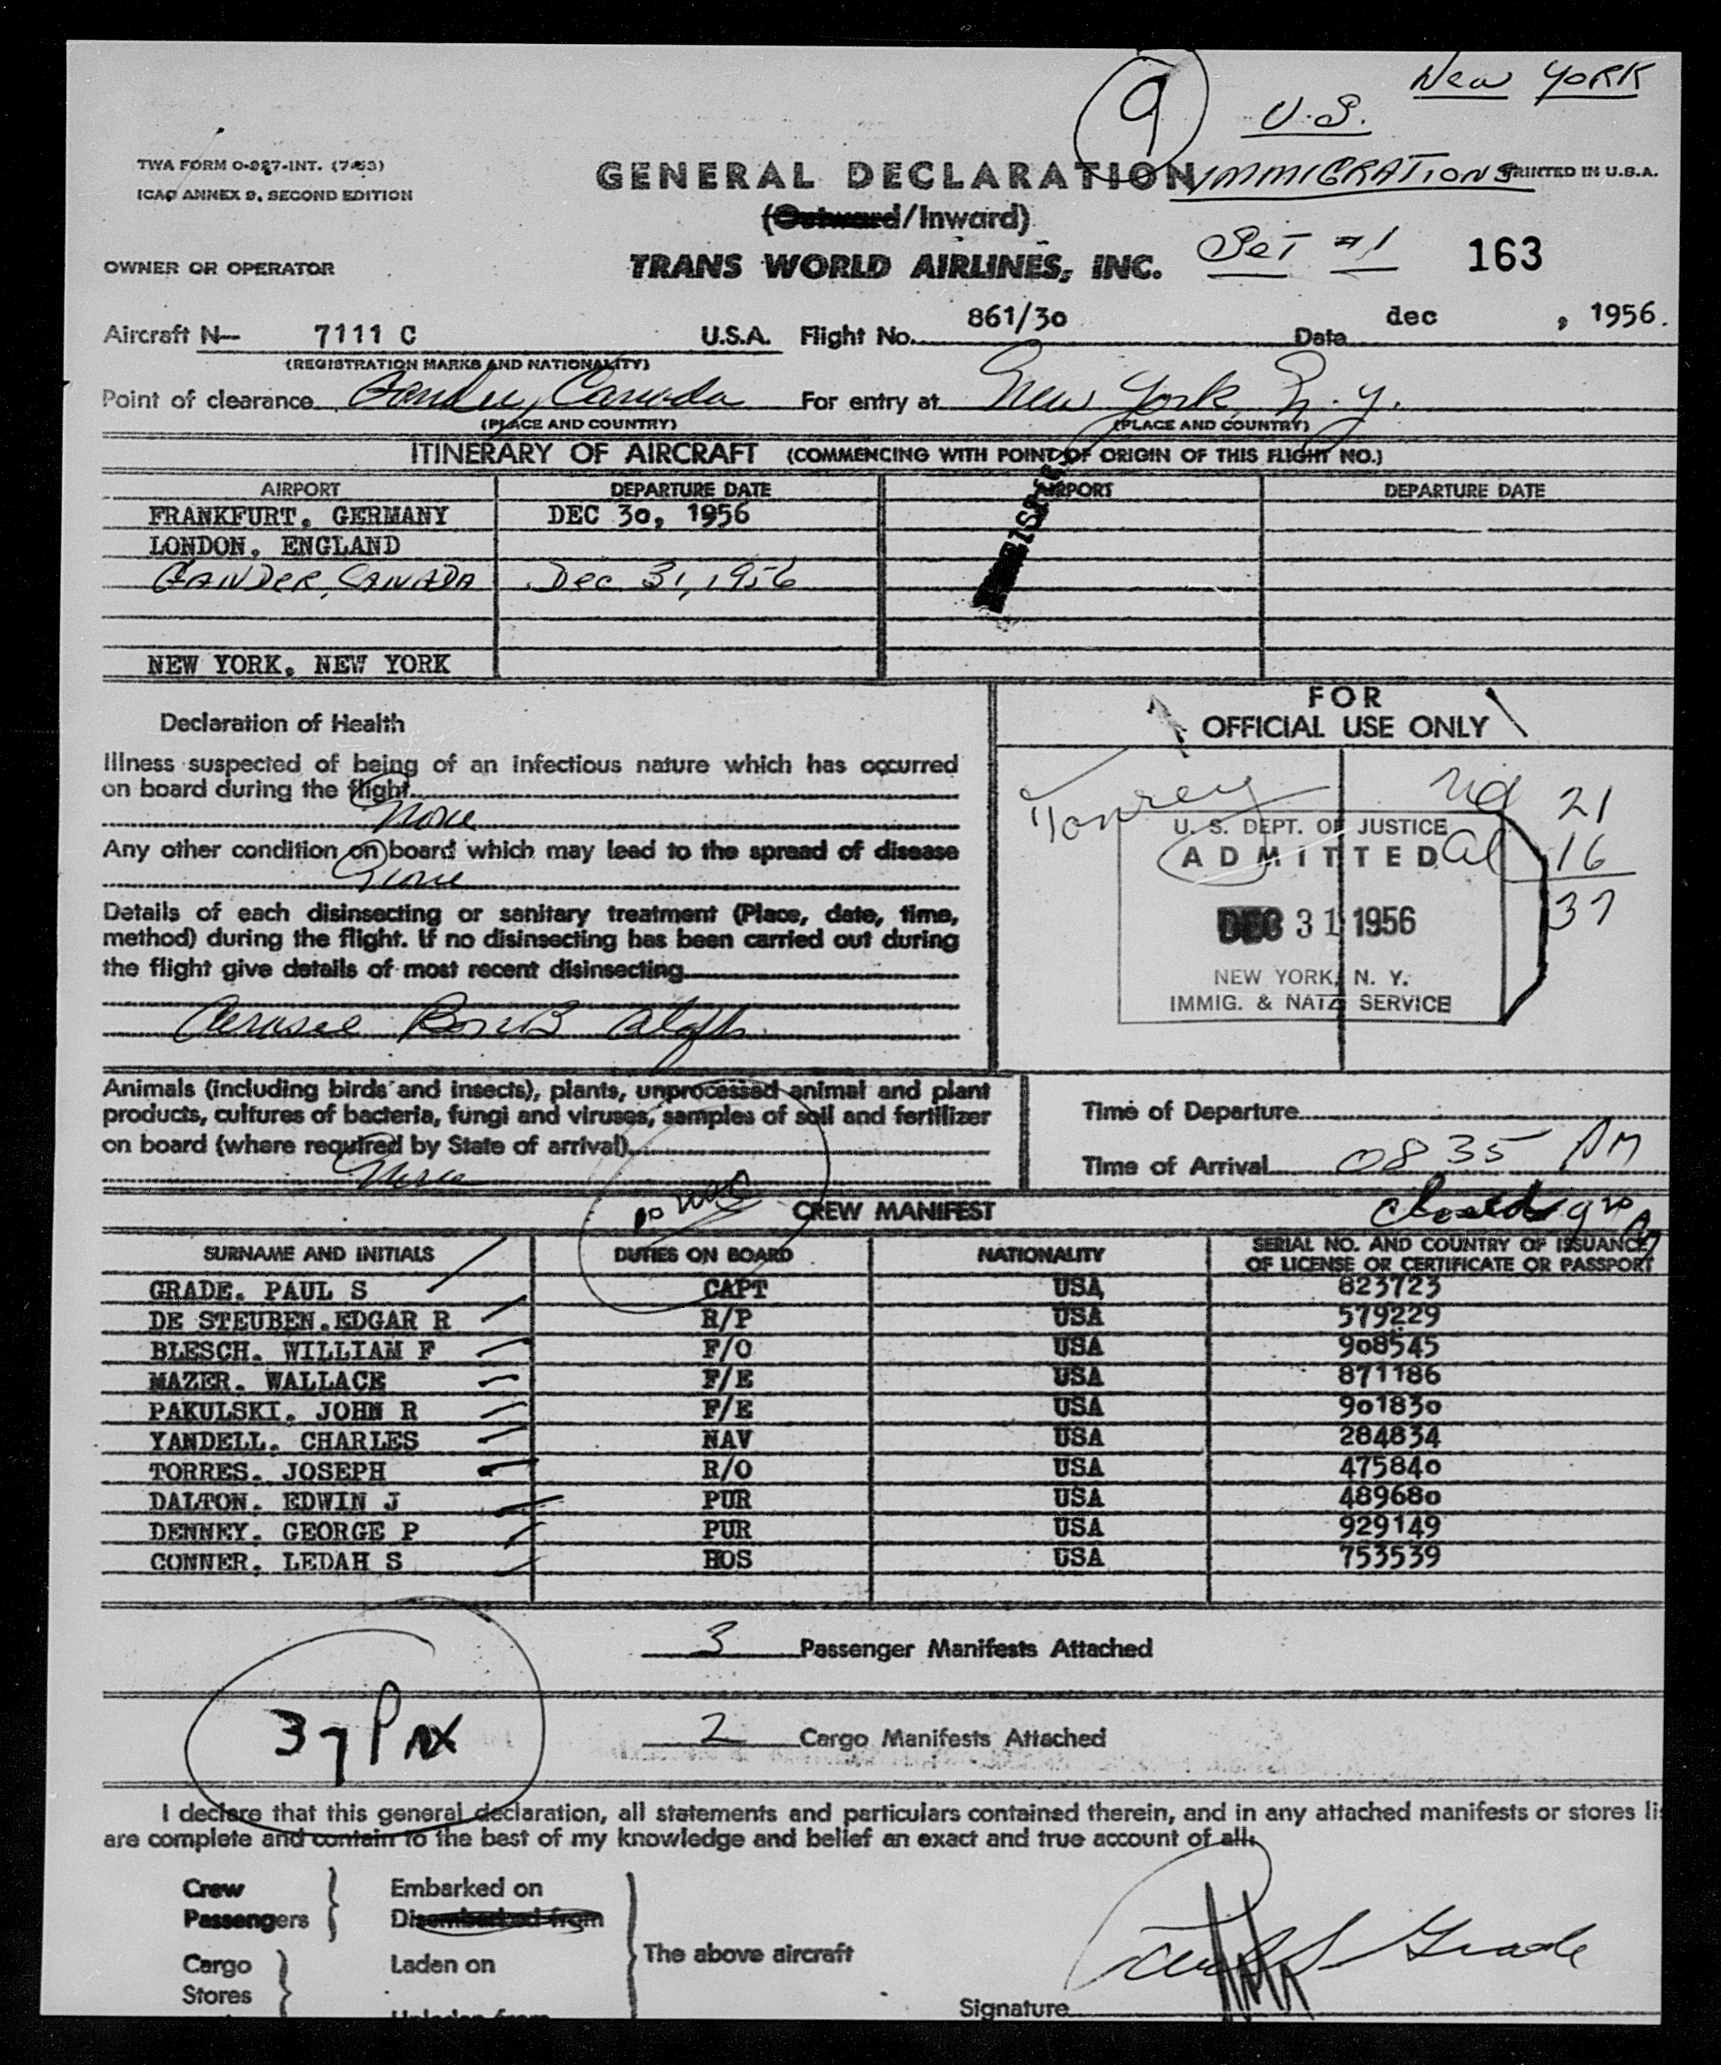 New York
9 U.S.
TWA FORM O-927-INT. (7-53)
GENERAL DECLARATION IMMIGRATIONS PRINTED IN U.S.A.
ICAO ANNEX 9, SECOND EDITION
(Outward/Inward)
SeT #1 163
OWNER OR OPERATOR TRANS WORLD AIRLINES, INC.
Aircraft N— 7111 C U.S.A. Flight No. 861/30 Date dec , 1956.
(REGISTRATION MARKS AND NATIONALITY)
Point of clearance Gander, Canada For entry at New York, N.Y.
(PLACE AND COUNTRY) (PLACE AND COUNTRY)
ITINERARY OF AIRCRAFT (COMMENCING WITH POINT OF ORIGIN OF THIS FLIGHT NO.)
AIRPORT DEPARTURE DATE AIRPORT DEPARTURE DATE
FRANKFURT, GERMANY DEC 30, 1956
LONDON, ENGLAND
GANDER, CANADA Dec 31, 1956
NEW YORK, NEW YORK
FOR
OFFICIAL USE ONLY
Declaration of Health
Illness suspected of being of an infectious nature which has occurred
on board during the flight
None
Any other condition on board which may lead to the spread of disease
None
Details of each disinsecting or sanitary treatment (Place, date, time,
method) during the flight. If no disinsecting has been carried out during
the flight give details of most recent disinsecting
Aerosol Bomb
21
16
37
U. S. DEPT. OF JUSTICE
ADMITTED
DEC 31 1956
NEW YORK, N. Y.
IMMIG. & NATZ SERVICE
Animals (including birds and insects), plants, unprocessed animal and plant
products, cultures of bacteria, fungi and viruses, samples of soil and fertilizer
on board (where required by State of arrival)
None
Time of Departure
Time of Arrival 0835 AM
CREW MANIFEST
SURNAME AND INITIALS DUTIES ON BOARD NATIONALITY SERIAL NO. AND COUNTRY OF ISSUANCE
OF LICENSE OR CERTIFICATE OR PASSPORT
GRADE, PAUL S CAPT USA 823723
DE STEUBEN, EDGAR R R/P USA 579229
BLESCH, WILLIAM F F/O USA 908545
MAZER, WALLACE F/E USA 871186
PAKULSKI, JOHN R F/E USA 901830
YANDELL, CHARLES NAV USA 284834
TORRES, JOSEPH R/O USA 475840
DALTON, EDWIN J PUR USA 489680
DENNEY, GEORGE P PUR USA 929149
CONNER, LEDAH S HOS USA 753539
3 Passenger Manifests Attached
37 Pax
2 Cargo Manifests Attached
I declare that this general declaration, all statements and particulars contained therein, and in any attached manifests or stores
are complete and contain to the best of my knowledge and belief an exact and true account of all:
Crew Embarked on
Passengers Disembarked from
The above aircraft
Cargo Laden on
Stores
Unladen from
Paul S Grade
Signature